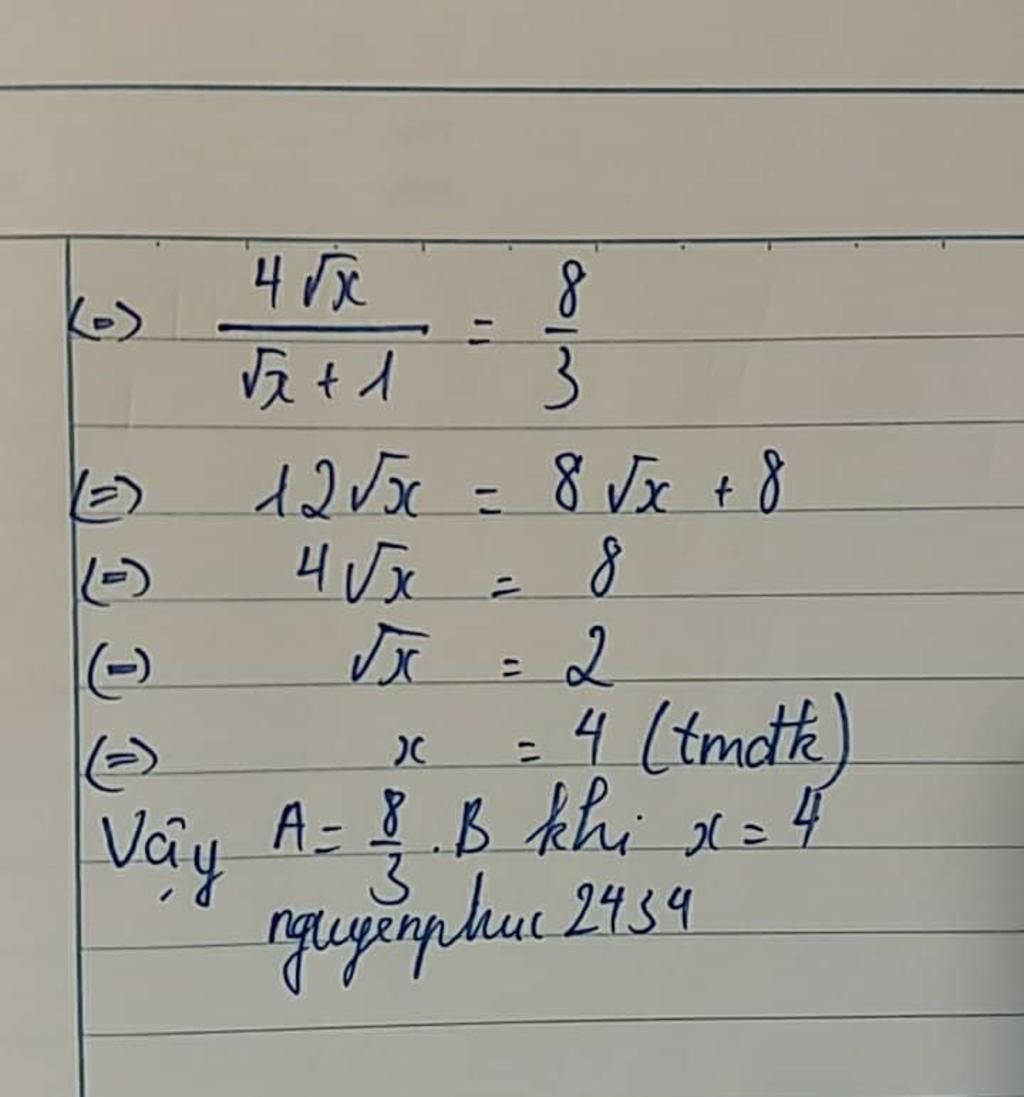 <=> 4√x / √x + 1 = 8/3
<=> 12√x = 8√x + 8
<=> 4√x = 8
<=> √x = 2
<=> x = 4 (tmđk)
Vậy A = 8/3 . B khi x = 4
nguyenphuc2434